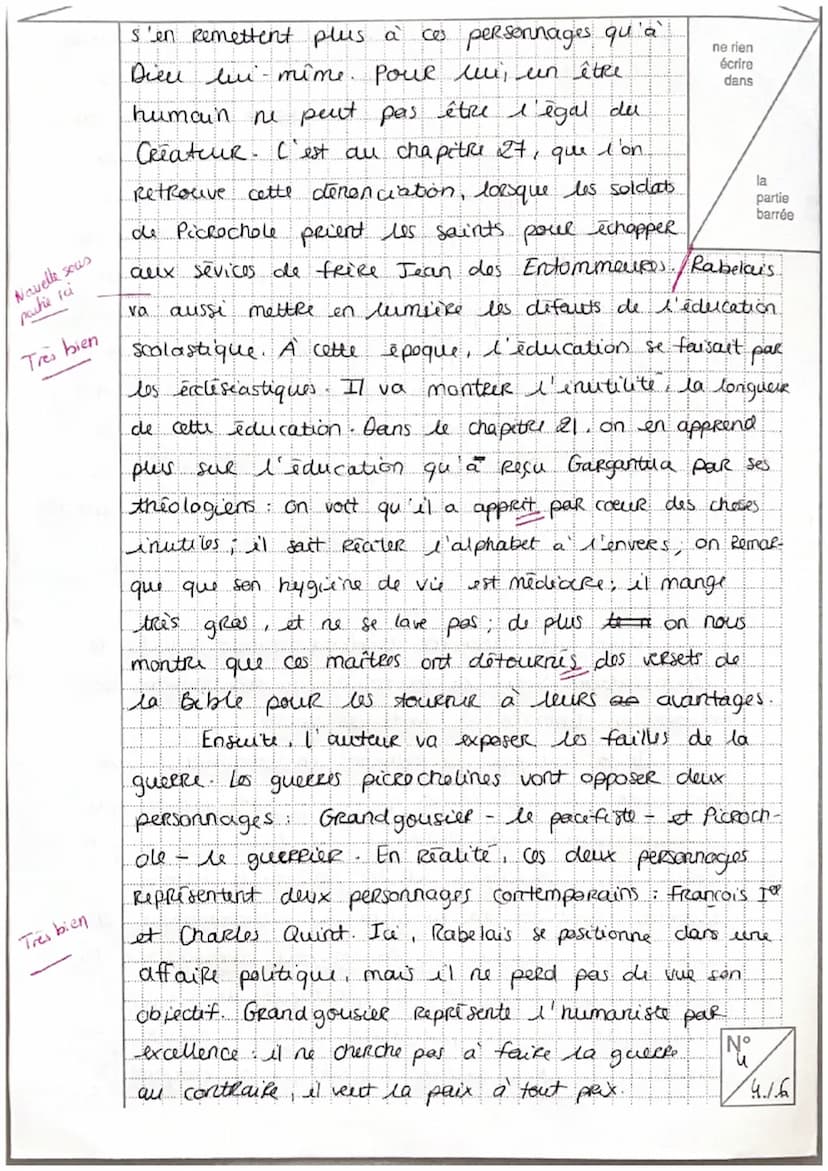 s'en remettent plus à ces personnages qu'à
Dieu lui-même. Pour lui, un être
humain ne peut pas être l'égal du
Créateur. C'est au chapitre 27, que l'on
retrouve cette dénonciation, lorsque les soldats
de Picrochole prient les saints pour échapper
aux sévices de frère Jean des Entommeures. / Rabelais
va aussi mettre en lumière les défauts de l'éducation
scolastique. À cette époque, l'éducation se faisait par
les ecclésiastiques. Il va montrer l'inutilité, la longueur
de cette éducation. Dans le chapitre 21, on en apprend
plus sur l'éducation qu'à reçu Gargantua par ses
théologiens : on voit qu'il a apprit par coeur des choses
inutiles ; il sait réciter l'alphabet à l'envers, on remar-
que que son hygiène de vie est médiocre ; il mange
très gras, et ne se lave pas ; de plus on nous
montre que ces maîtres ont détournés des versets de
la Bible pour les tourner à leurs avantages.
Ensuite, l'auteur va exposer les failles de la
guerre. Les guerres picrocholines vont opposer deux
personnages : Grandgousier - le pacifiste - et Picroch-
ole - le guerrier. En réalité, ces deux personnages
représentent deux personnages contemporains : François Ier
et Charles Quint. Ici, Rabelais se positionne dans une
affaire politique, mais il ne perd pas de vue son
objectif. Grandgousier représente l'humaniste par
excellence : il ne cherche pas à faire la guerre
au contraire, il veut la paix à tout prix.
ne rien
écrire
dans
la
partie
barrée
Nouvelle sous
partie ici
Très bien
Très bien
N°
4
4./6